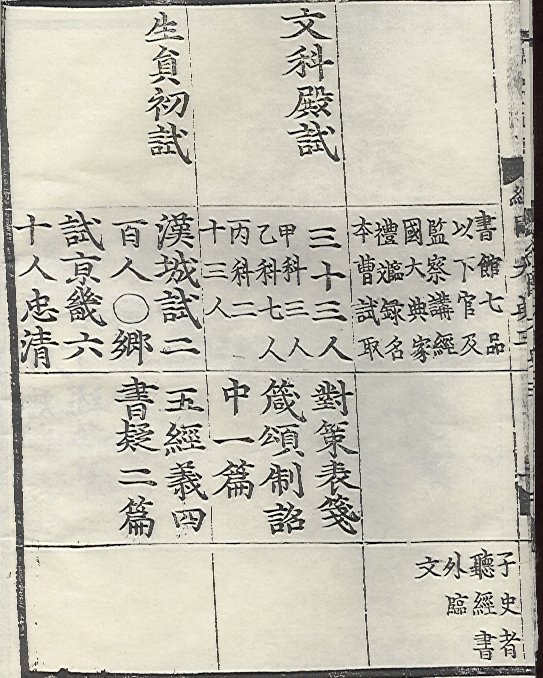 書館七品
以下官及
監察講經
國大典家
禮謳録名
本曹試取
子史者
聽經書
外臨
文
文科殿試
三十三人
甲科三人
乙科七人
丙科二
十三人
對策表箋
箴頌制詔
中一篇
生員初試
漢城試二
百人○鄉
試京畿六
十人忠清
五經義四
書疑二篇